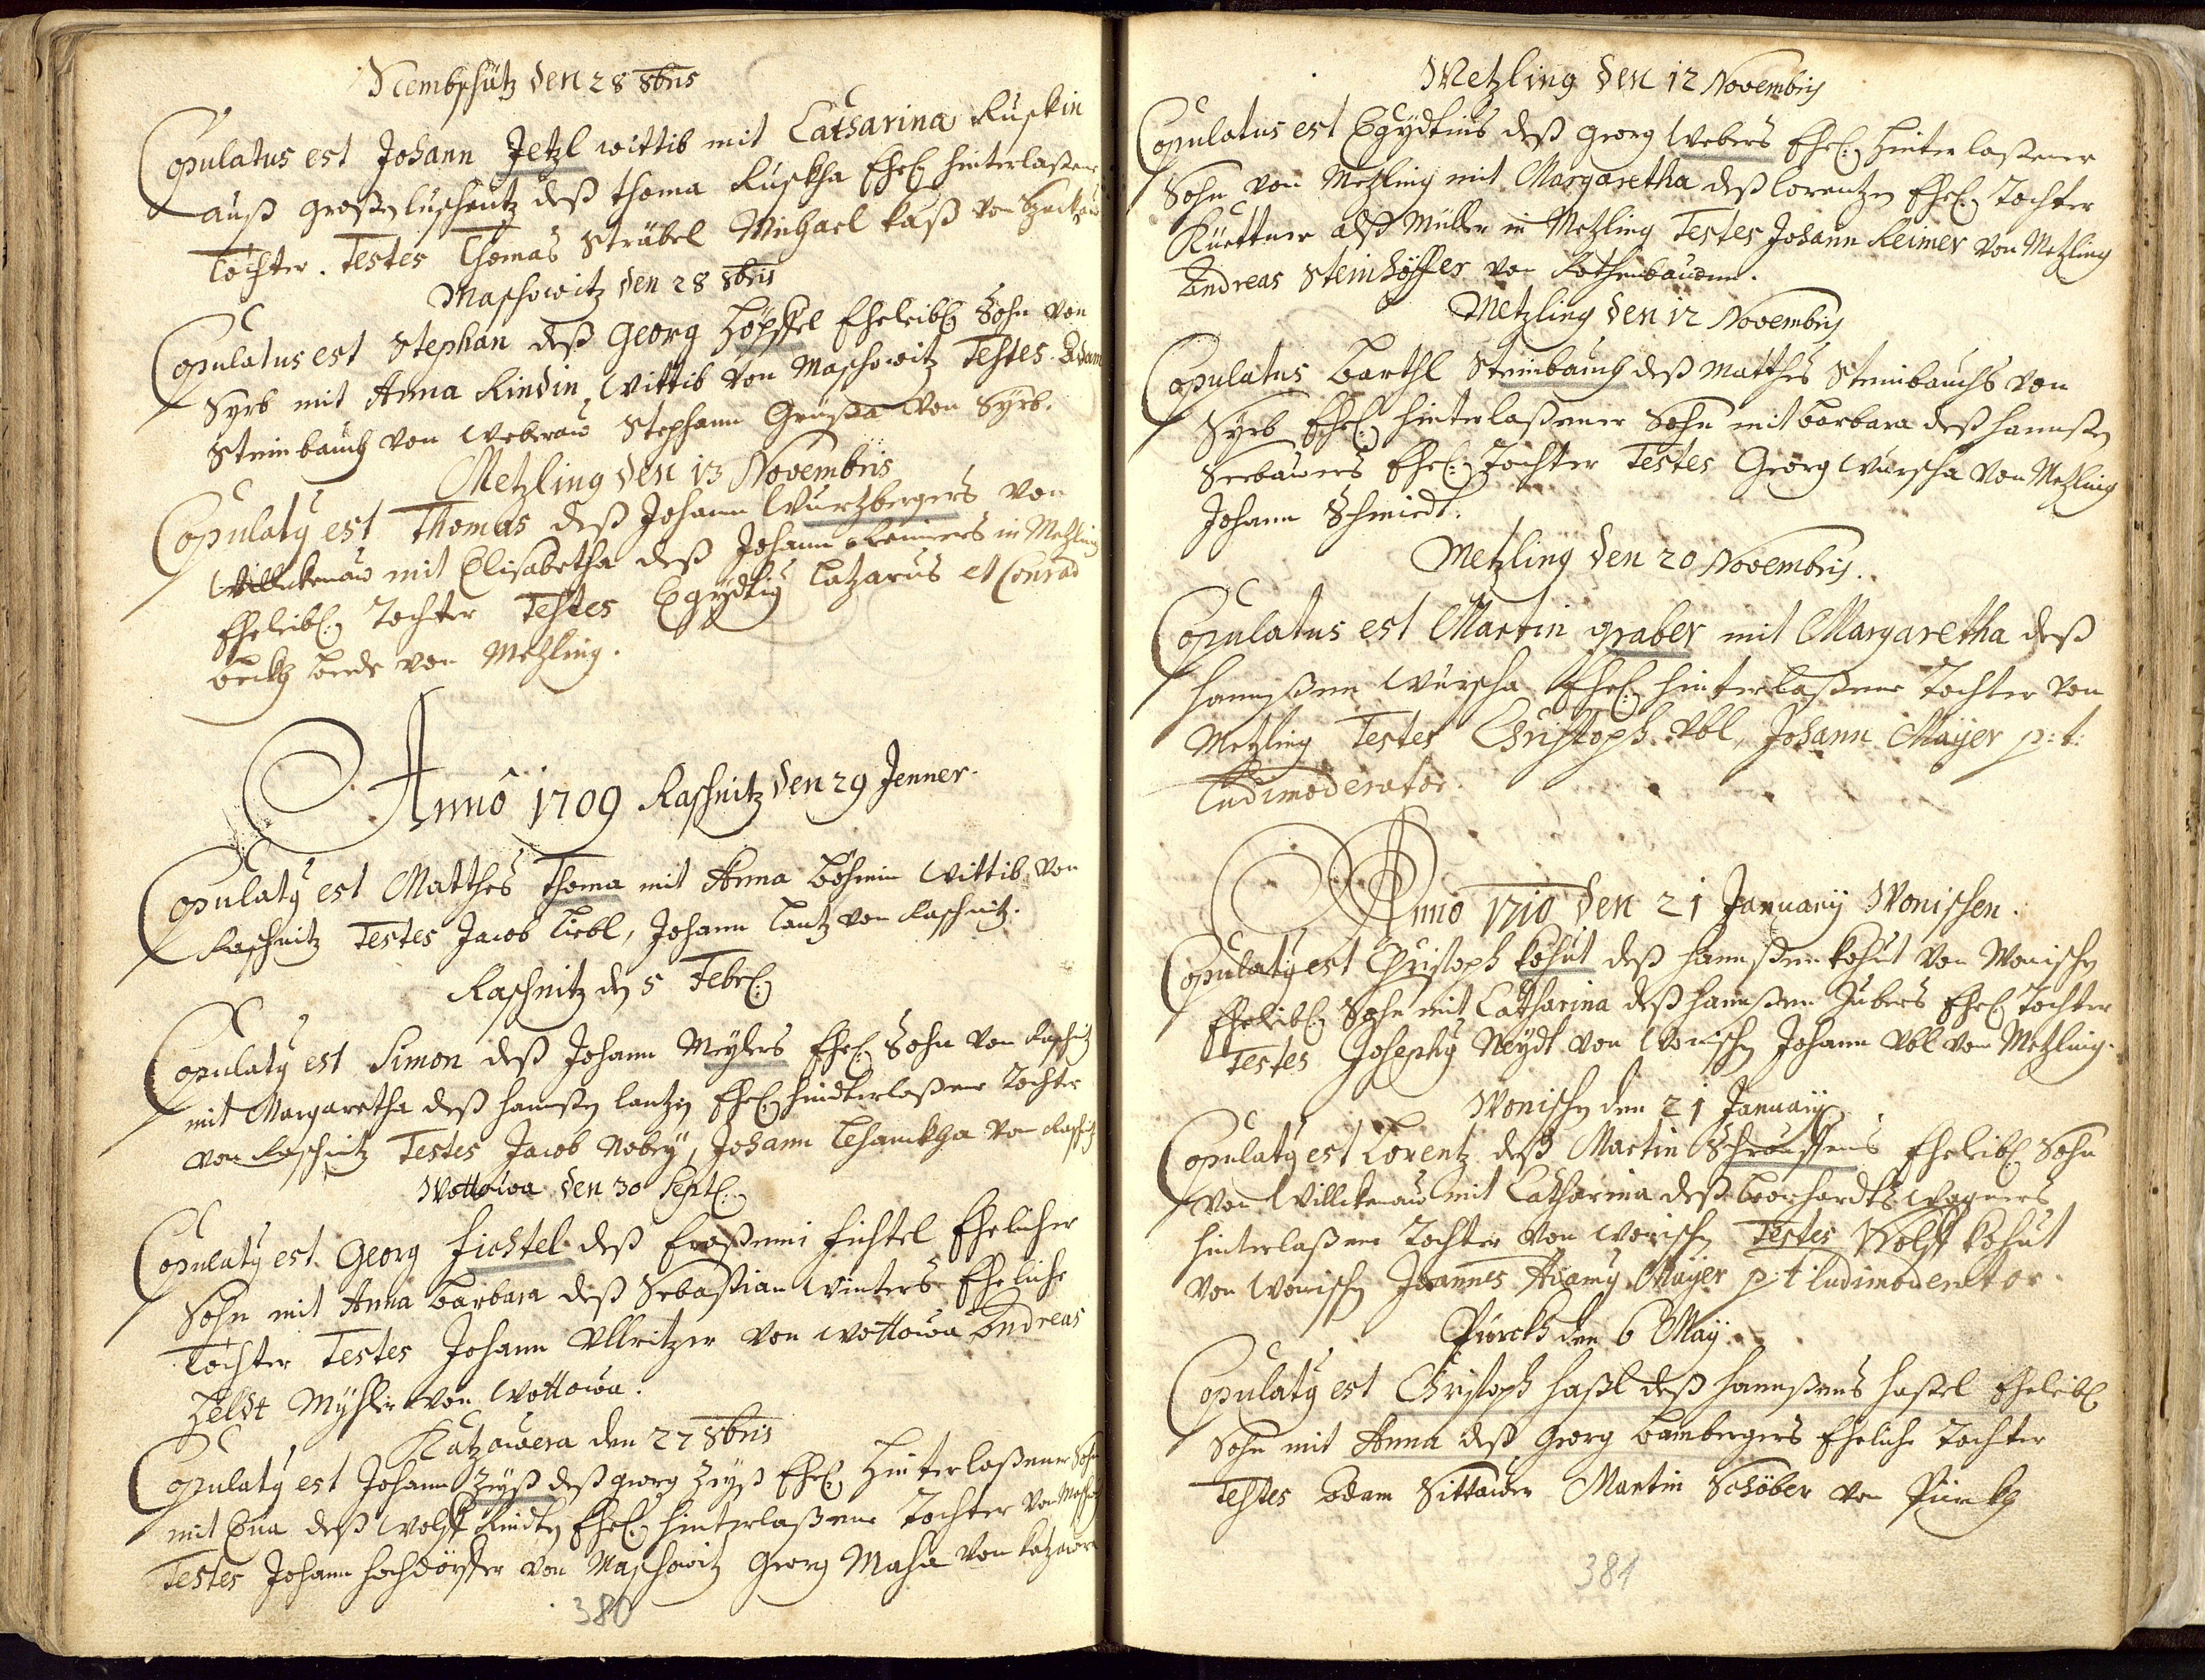 den 28 8bris
Copulatus est Johann Jetzl wittib mit Catharina Ruskin
auß deß thoma Ruskha Ehel: hinterlaßene
Tochter. Testes Thomas Sträbel Michael kaß von
Maschowitz den 28 8bris
Copulatus est Stephan deß Georg Höpffel Eheleibl: Sohn von
Syrb mit Anna Rindin, Wittib von Maschowitz Testes. Adam
Steinbauch von Weberaw Stephann Grusa von Syrb.
Metzling den 13 Novembris
Copulatg est Thomas deß Johann Wurtzbergers von
Willickenaw mit Elisabetha deß Johann Reimers in Metzling
Eheleibl: Tochter Testes Egydtig Latzarus et Conrad
beede von Metzling.
Anno 1709 Raschnitz den 29 Jenner.
Copulatg est Matthes Thoma mit Anna Böhmin Wittib von
Raschnitz Testes Jacob Liebl, Johann Lantz von Raschnitz.
Raschnitz den 5 Febr:
Copulatg est Simon deß Johann Meylers Ehel: Sohn von Raschnitz
mit Margaretha deß Hannßen Lantzen Ehel: hindterlaßene Tochter
von Raschnitz Testes Jacob Nobey, Johann von Raschnitz
Wottowa den 30 Sept:
Copulatg est Georg Fichtel deß Fichtel Ehelicher
Sohn mit Anna Barbara deß Sebastian Winters Eheliche
Tochter Testes Johann Ullritzer von Wottowa Andreas
Heldt von Wottowa.
Katzawera den 27 8bris
Copulatg est Johann Zeyß deß georg Zeyß Ehel: Hinterlaßener Sohn
mit Eva deß Wolff Rindten Ehel: hinterlaßene Tochter von
Testes Johann Hochdörffer von Maschowitz Georg Maha von Katzawera
380
Metzling den 12 Novembris
Copulatus est Egydtius deß georg Webers Ehel: Hinterlaßener
Sohn von Metzling mit Margaretha deß Lorentzen Ehel: Tochter
Küettner alß Müller in Metzling Testes Johann Reimer von Metzling
Andreas Steinhöffer von Rothenbaumen.
Metzling den 12 Novembris
Copulatus Barthl Steinbauch deß Matthes Steinbauchs von
Syrb Ehel: hinterlaßener Sohn mit barbara deß hannßen
Seebauers Ehel: Tochter Testes Georg Wurscha von Metzling
Johann Schmiedt.
Metzling den 20 Novembris.
Copulatus est Martin graber mit Margaretha deß
hannßen Wurscha Ehel: hinterlaßene Tochter von
Metzling Testes Christoph Vbl, Johann Mayer p: t:
Ludimoderator.
Anno 1710 den 21 January Wonischen.
Copulatg est Christoph Kohut deß hannßen Kohut von Wonischen
Eheleibl: Sohn mit Catharina deß hannßen Hubers Ehel: Tochter
Testes Josephg Neydt von Wonischen Johann Vbl von Metzling.
Wonischen den 21 January
Copulatg est Lorentz deß Martin Eheleibl: Sohn
von Willckenaw mit Catharina deß Leonhardts Wagners
hinterlaßene Tochter von Wonischen Testes Wolff Kohut
von Wonischen Joannes Adamg Mayer p: t ludimoderator.
Pürckh den 6 May.
Copulatg est Christoph haßl deß hannßens haßel Eheleibl:
Sohn mit Anna deß Georg Bambergers Eheliche Tochter
Testes Adam Sittauer Martin Schöber von Pürckh
381